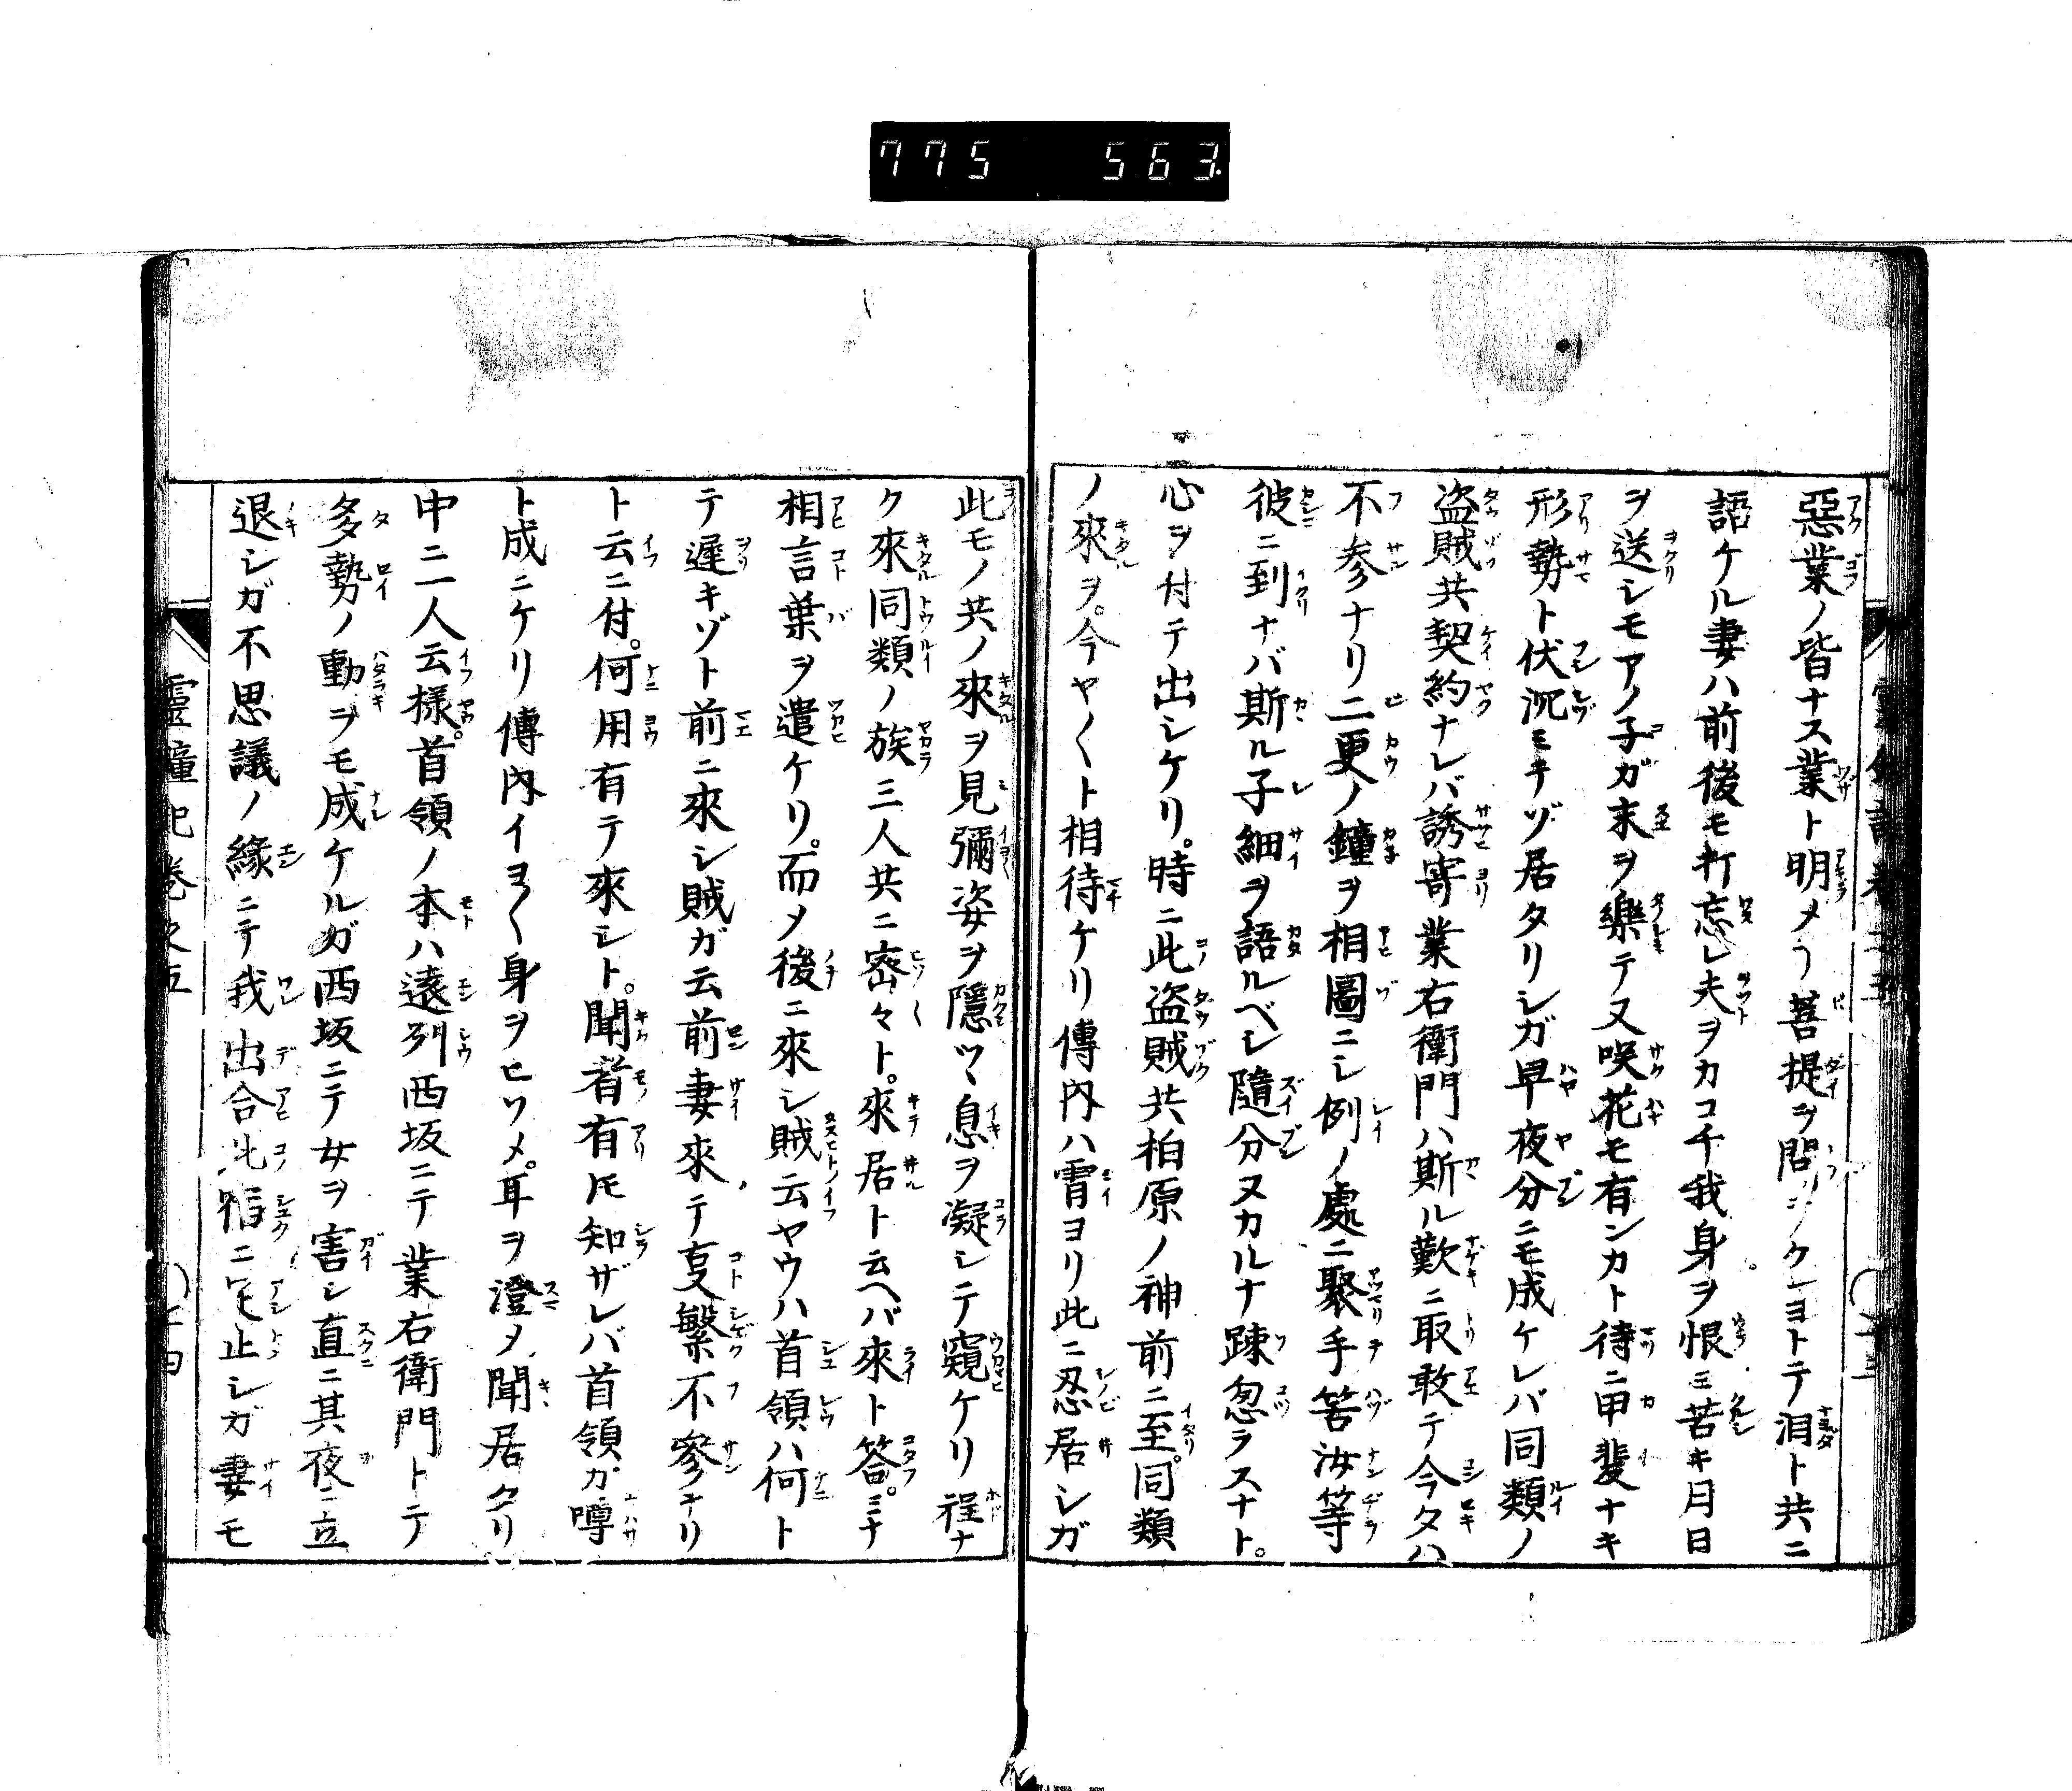 775 563
惡業ノ皆ナス業ト明メラ菩提ヲ問ヲクシヨトテ泪ト共ニ
語ケル妻ハ前後モ打忘レ夫ヲカコチ我身ヲ恨ミ苦キ月日
ヲ送シモアノ子ガ末ヲ樂テ又咲花モ有ンカト待ニ甲斐ナキ
形勢ト伏沉モテヅ居タリシガ早夜分ニモ成ケレバ同類ノ
盗賊共契約ナレバ誘寄業右衛門ハ斯ル歎ニ取敢テ今タハ
不参ナリ二更ノ鐘ヲ相圖ニシ例ノ處ニ聚手筈汝等
彼ニ到ナバ斯ル子細ヲ語ルベシ隨分ヌカルナ踈忽ラスナト。
心ヲ付テ出シケリ。時ニ此盗賊共柏原ノ神前ニ至。同類
ノ來ヲ。今ヤ〱ト相待ケリ傳内ハ霄ヨリ此ニ忍居シガ
此モノ共ノ來ヲ見彌姿ヲ隱ツヽ息ヲ凝シテ窺ケリ程ナ
ク來同類ノ族三人共ニ密々ト。來居ト云ヘバ來ト答。ミナ
相言葉ヲ遣ケリ。而メ後ニ來シ賊云ヤウハ首領ハ何ト
テ遲キゾト前ニ來シ賊ガ云前妻來テ㕝繁不參ナリ
ト云ニ付。何用有テ來シト。聞者有𪜈知ザレバ首領ガ噂
ト成ニケリ傳内イヨ〱身ヲヒソメ。耳ヲ澄メ聞居タリ
中ニ一人云様。首領ノ本ハ遠列西坂ニテ業右衛門トテ
多勢ノ動ヲモ成ケルガ西坂ニテ女ヲ害シ直ニ其夜ニ立
退シガ不思議ノ緣ニテ我出合此宿ニ足止シガ妻モ
靈驗記卷之五 〇十四